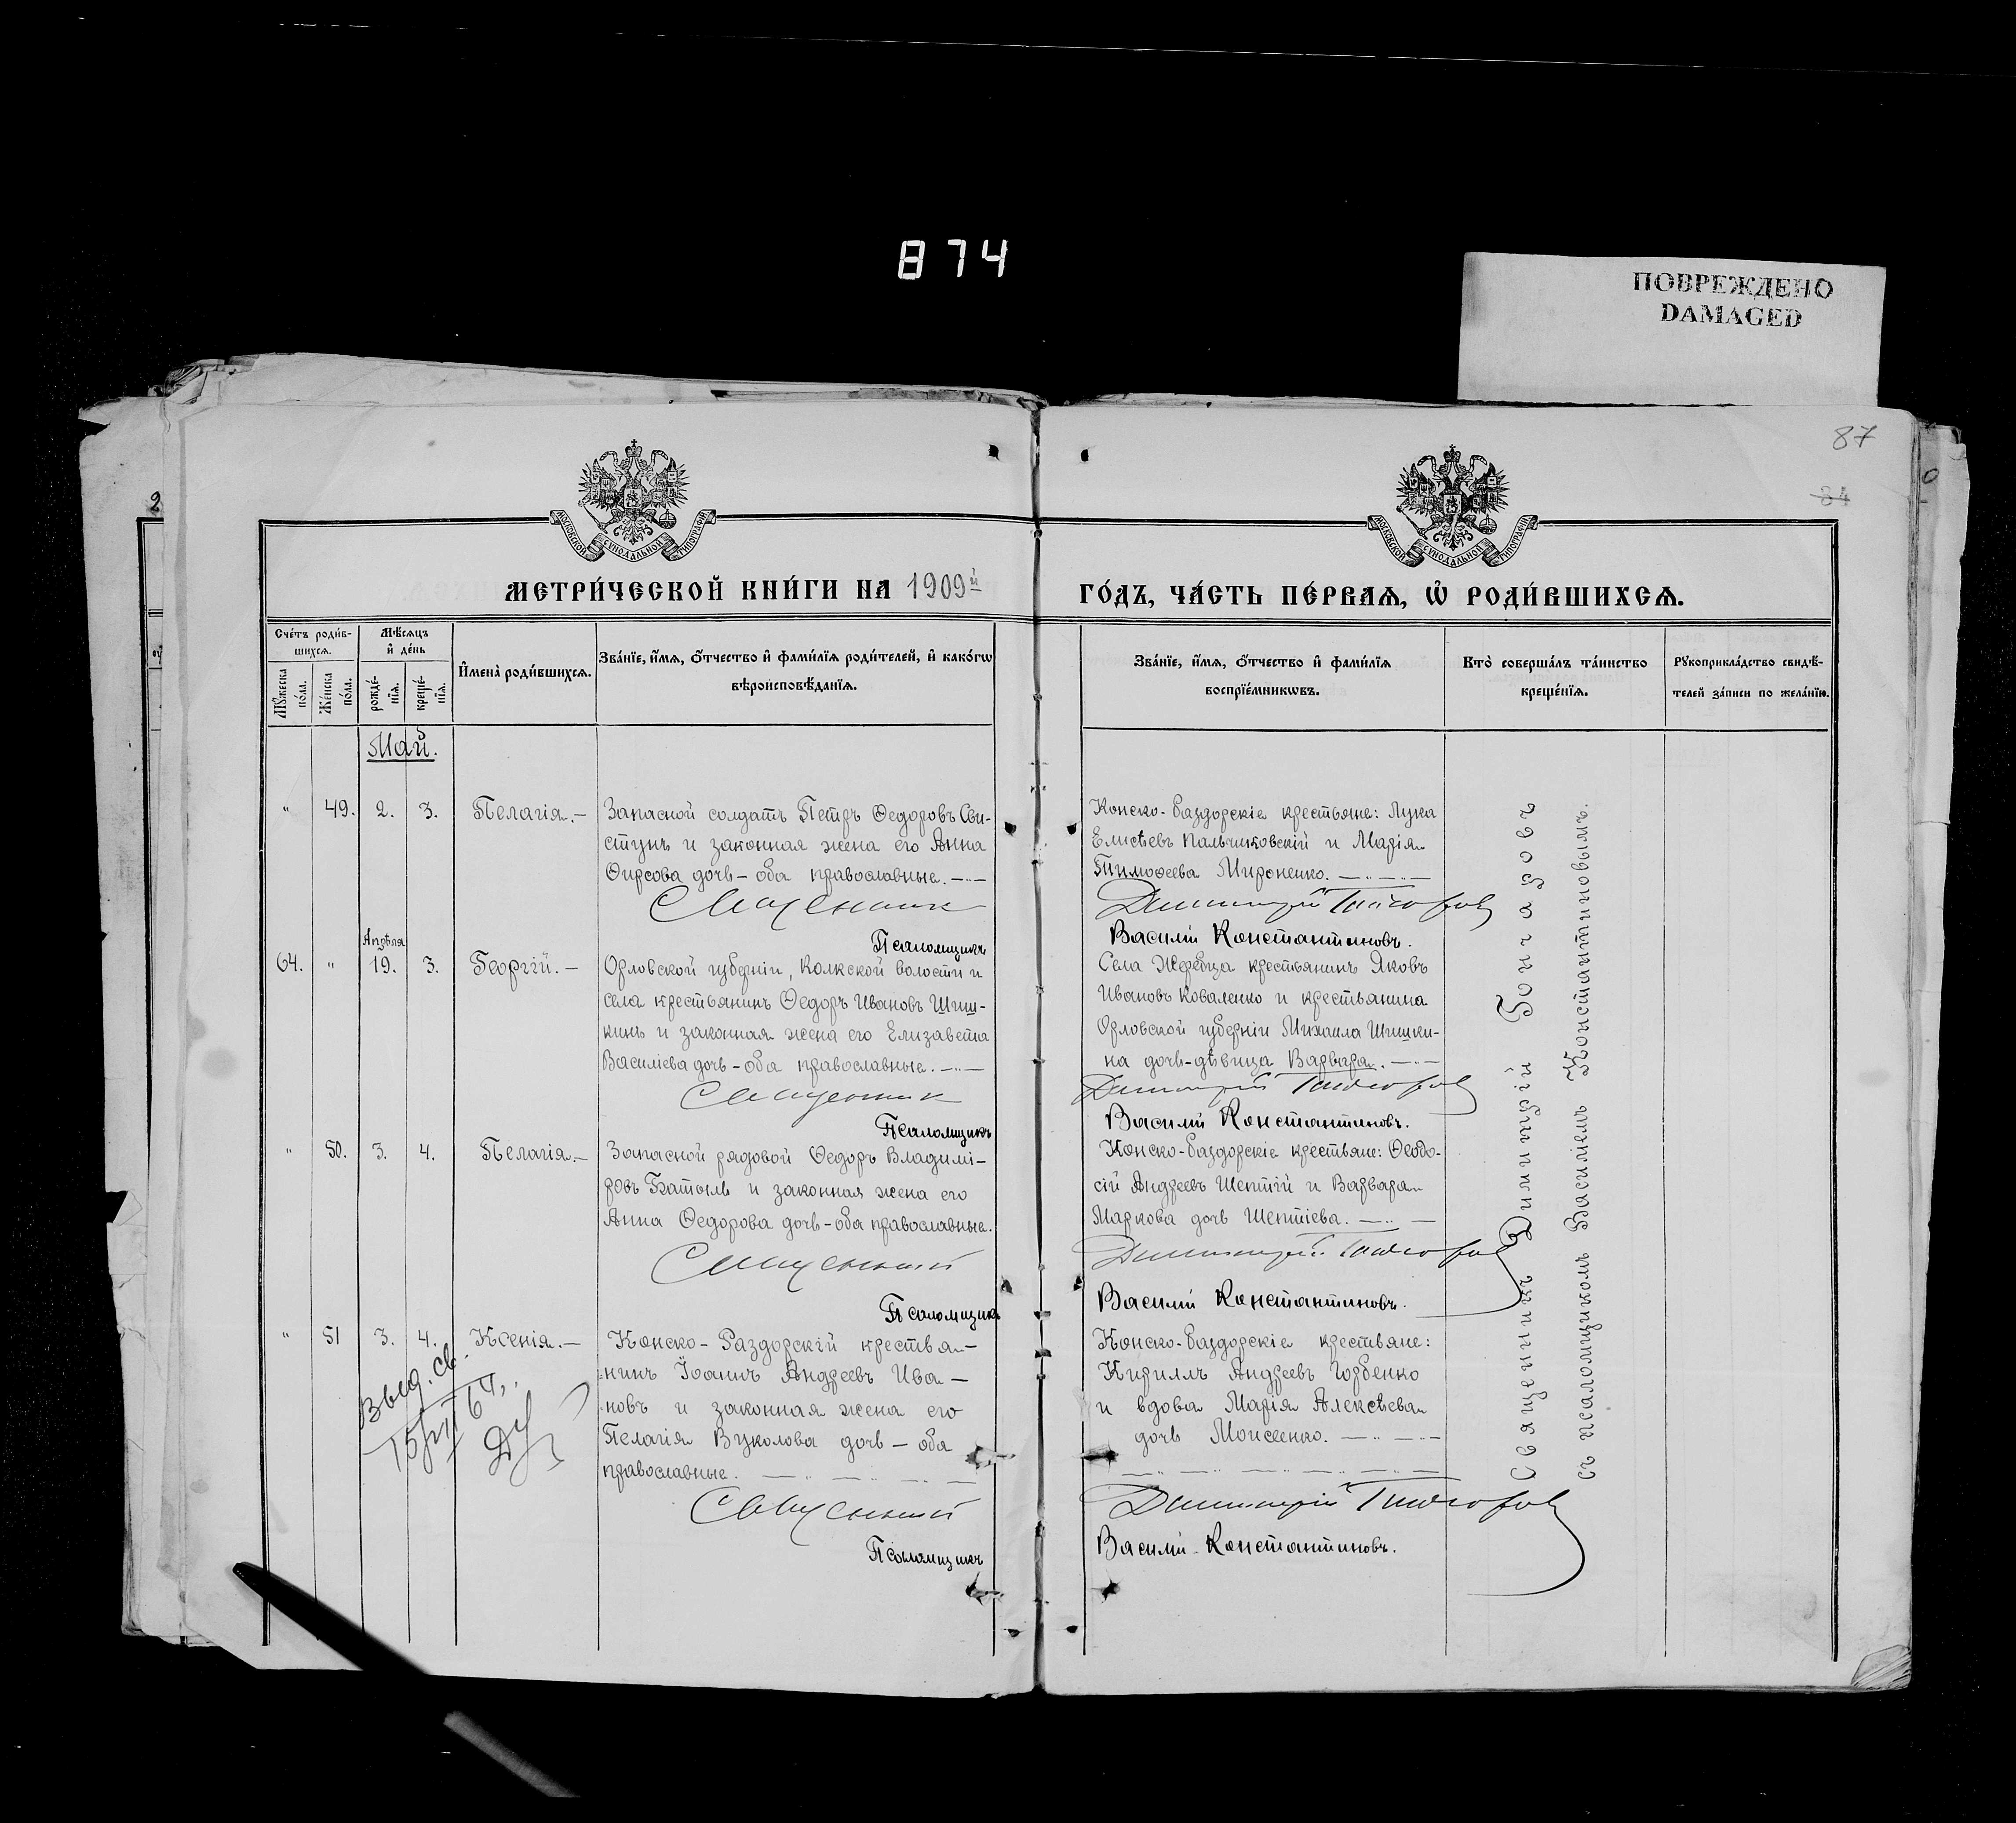 874
ПОВРЕЖДЕНО
DAMAGED
87
84
МОСКОВСКОЙ СѴНОДАЛЬНОЙ ТИПОГРАФІИ
МОСКОВСКОЙ СѴНОДАЛЬНОЙ ТИПОГРАФІИ
МЕТРИ́ЧЕСКОЙ КНИ́ГИ НА 1909й
ГО́ДЪ, ЧА́СТЬ ПЕ́РВАѦ, Ѡ҆ РОДИ́ВШИХСѦ.
Сче́тъ роди́в-
шихсѧ.
Мѣ́сѧцъ
и҆ де́нь
Мꙋ́жеска
по́ла.
Же́нска
по́ла.
рожде́-
нїѧ.
креще́-
нїѧ.
И҆мена̀ роди́вшихсѧ.
Зва́нїе, и҆́мѧ, ѻ҆́тчество и҆ фами́лїѧ роди́телей, и҆ како́гѡ
вѣроисповѣ́данїѧ.
Зва́нїе, и҆́мѧ, ѻ҆́тчество и҆ фами́лїѧ
воспрїе́мникѡвъ.
Кто̀ соверша́лъ та́инство
креще́нїѧ.
Рꙋкоприкла́дство свидѣ́-
телей за́писи по жела́нїю.
Май.
" 49. 2. 3. Пелагія.—
Запасной солдатъ Петръ Ѳедоровъ Сви-
стунъ и законная жена его Анна
Ѳирсова дочь – оба православные.
Священникъ
Псаломщикъ
Конско-Раздорскіе крестьяне: Лука
Елисѣевъ Пальчиковскій и Марія
Тимоѳеева Мироненко.
Димитрій Гончаровъ
Василій Константиновъ.
Апрѣля
64. " 19. 3. Георгій.—
Орловской губерніи, Колкской волости и
села крестьянинъ Ѳедоръ Ивановъ Шиш-
кинъ и законная жена его Елизавета
Василіева дочь – оба православные.
Священникъ
Псаломщикъ
Села Жеребца крестьянинъ Яковъ
Ивановъ Коваленко и крестьянина
Орловской губерніи Михаила Шишки-
на дочь-дѣвица Варвара.
Димитрій Гончаровъ
Василій Константиновъ.
" 50. 3. 4. Пелагія.—
Запасной рядовой Ѳедоръ Владимі-
ровъ Батыль и законная жена его
Анна Ѳедорова дочь – оба православные.
Священникъ
Псаломщикъ
Конско-Раздорскіе крестьяне: Ѳеодо-
сій Андреевъ Шептій и Варвара
Маркова дочь Шептіева.
Димитрій Гончаровъ
Василій Константиновъ.
" 51 3. 4. Ксенія.—
Конско-Раздорскій крестья-
нинъ Іоаннъ Андреевъ Ива-
новъ и законная жена его
Пелагія Вуколова дочь – оба
православные.
Священникъ
Псаломщикъ
Конско-Раздорскіе крестьяне:
Кириллъ Андреевъ Горбенко
и вдова Марія Алексѣева
дочь Моисеенко.
Димитрій Гончаровъ
Василій Константиновъ.
Выд. св.
Священникъ Димитрій Гончаровъ
съ псаломщикомъ Василіемъ Константиновымъ.